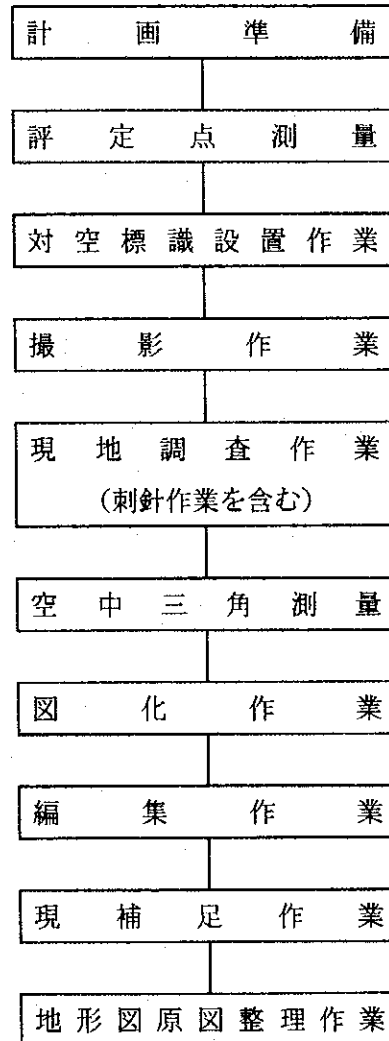 計画準備
評定点測量
対空標識設置作業
撮影作業
現地調査作業
(刺針作業を含む)
空中三角測量
図化作業
編集作業
現補足作業
地形図原図整理作業